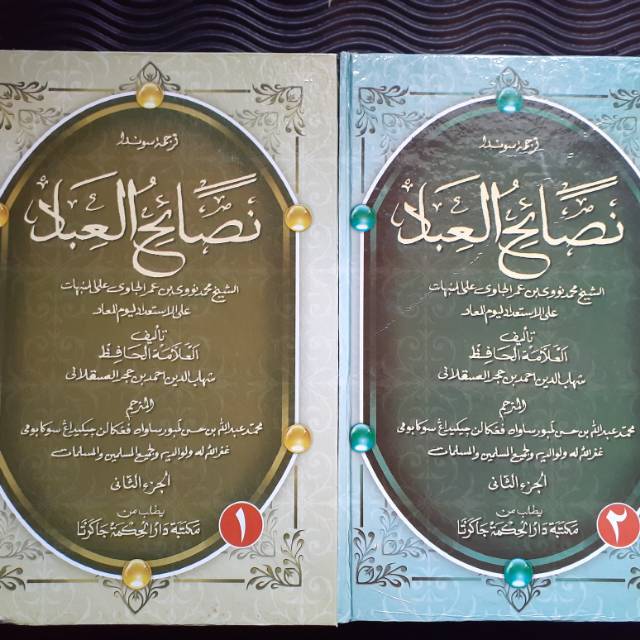 ترجمة سوندا
نَصَائِحُ الْعِبَادْ
الشيخ محمد نووي بن عمر الجاوى على المنبهات
على الاستعداد ليوم المعاد
تأليف
العَلَّامَة الحَافِظ
شهاب الدين احمد بن حجر العسقلانى
المترجم
محمد عبدالله بن حسن
غفر الله له ولوالديه ولجميع المسلمين والمسلمات
الجزء الثانى
يطلب من
مكتبة دار الحكمة جاكرتا
١
ترجمة سوندا
نَصَائِحُ الْعِبَادْ
الشيخ محمد نووي بن عمر الجاوى على المنبهات
على الاستعداد ليوم المعاد
تأليف
العَلَّامَة الحَافِظ
شهاب الدين احمد بن حجر العسقلانى
المترجم
محمد عبدالله بن حسن
غفر الله له ولوالديه ولجميع المسلمين والمسلمات
الجزء الثانى
يطلب من
مكتبة دار الحكمة جاكرتا
٢